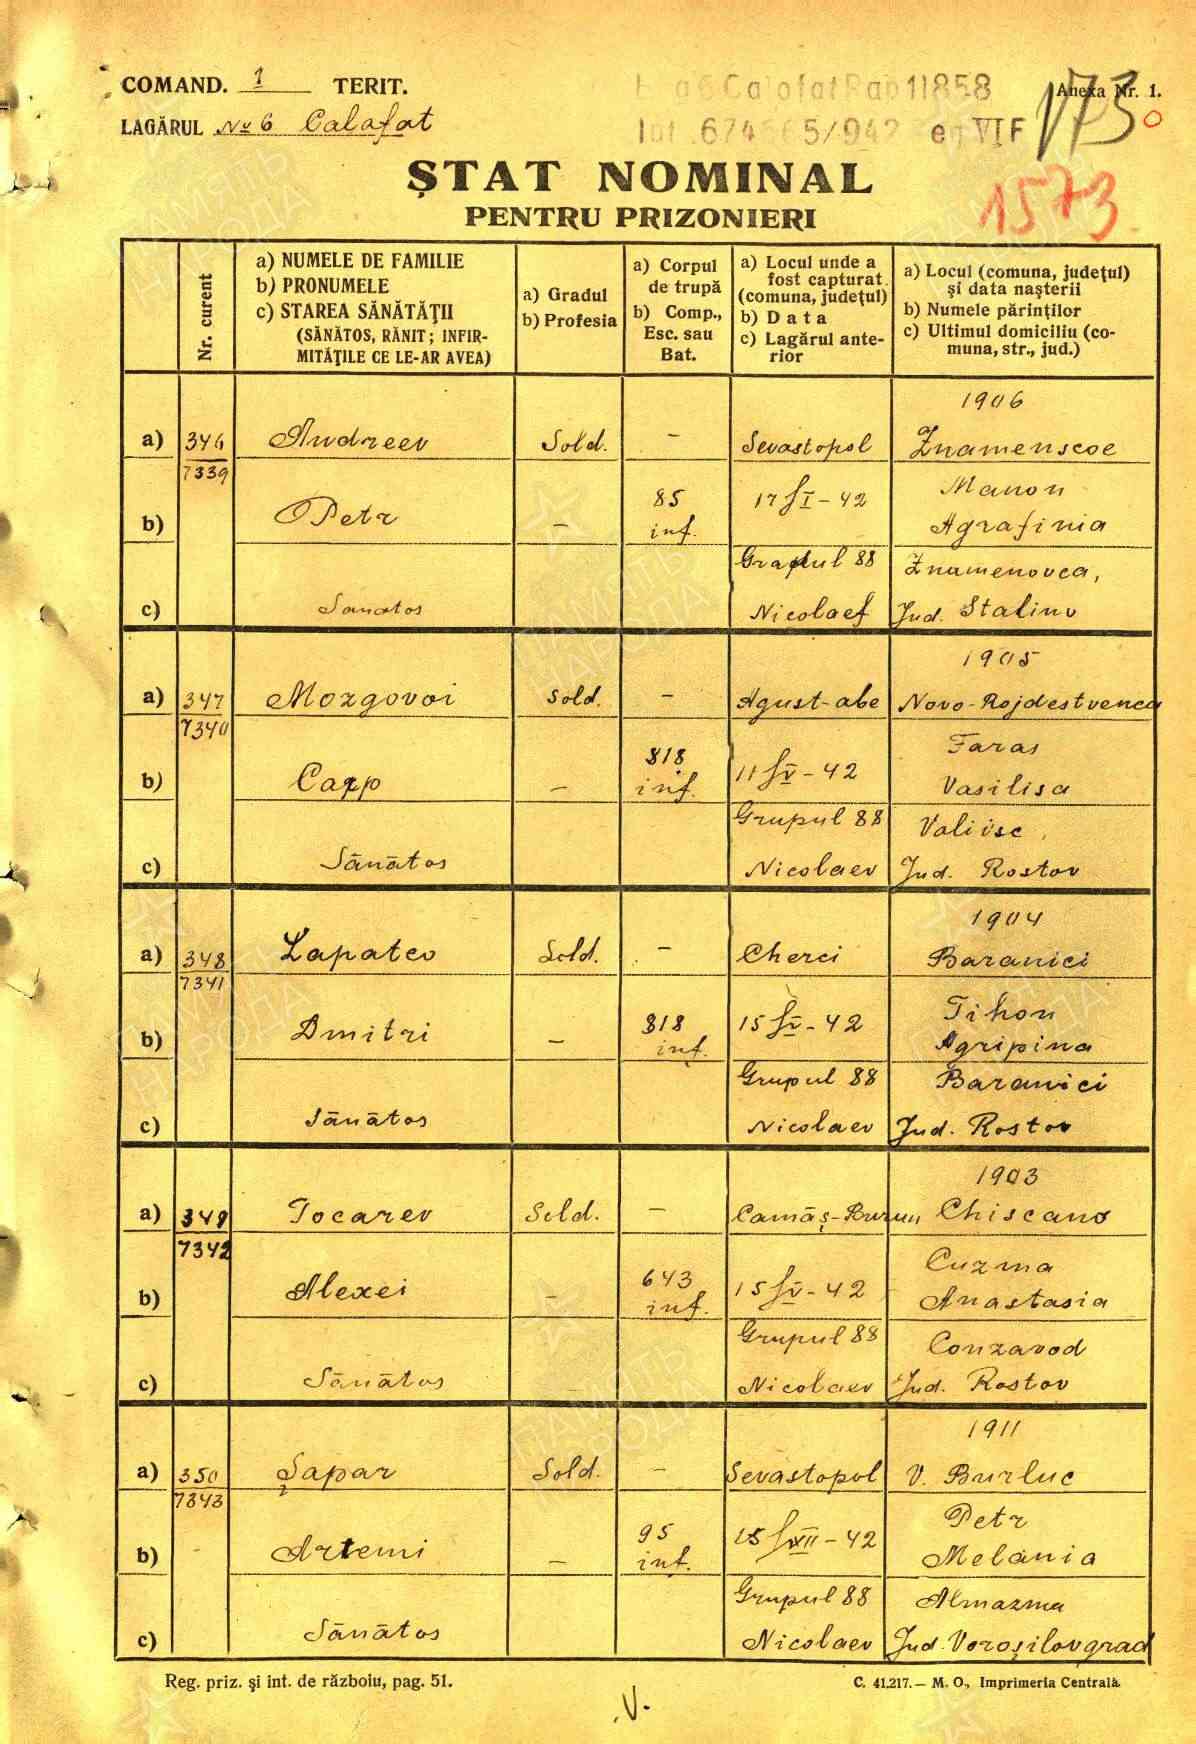 COMAND. 1 TERIT.
LAGĂRUL No 6 Calafat
Calafat Rap 11858
Anexa Nr. 1.
173
1573
ȘTAT NOMINAL
PENTRU PRIZONIERI
Nr. curent
a) NUMELE DE FAMILIE
b) PRONUMELE
c) STAREA SĂNĂTĂŢII
(SĂNĂTOS, RĂNIT; INFIR-
MITĂŢILE CE LE-AR AVEA)
a) Gradul
b) Profesia
a) Corpul
de trupă
b) Comp.,
Esc. sau
Bat.
a) Locul unde a
fost capturat
(comuna, judeţul)
b) Data
c) Lagărul ante-
rior
a) Locul (comuna, judeţul)
și data nașterii
b) Numele părinţilor
c) Ultimul domiciliu (co-
muna, str., jud.)
1906
a) 346 Andreev Sold. – Sevastopol Znamenscoe
7339
Manon
b) Petr – 85 inf. 17 VI – 42
Agrafinia
Grupul 88 Znamenovca,
c) Sanatos Nicolaef Jud. Stalino
1905
a) 347 Mozgovoi Sold. – Agust-abe Novo-Rojdestvenca
7340
Faras
b) Carp – 818 inf. 11 V – 42
Vasilisa
Grupul 88 Valiisc,
c) Sănătos Nicolaev Jud. Rostov
1904
a) 348 Lapatev Sold. – Cherci Baranici
7341
Tihon
b) Dmitri – 818 inf. 15 V – 42
Agripina
Grupul 88 Baranici
c) Sănătos Nicolaev Jud. Rostov
1903
a) 349 Tocarev Sold. – Camăș-Burun Chiscano
7342
Cuzma
b) Alexei – 643 inf. 15 V – 42
Anastasia
Grupul 88 Conzavod
c) Sănătos Nicolaev Jud. Rostov
1911
a) 350 Șapar Sold. – Sevastopol V. Burluc
7343
Petr
b) Artemi – 95 inf. 15 VII – 42
Melania
Grupul 88 Almazma
c) Sănătos Nicolaev Jud. Voroșilovgrad
Reg. priz. și int. de războiu, pag. 51.
C. 41.217. – M. O., Imprimeria Centrală.
.V.
ПАМЯТЬ
НАРОДА